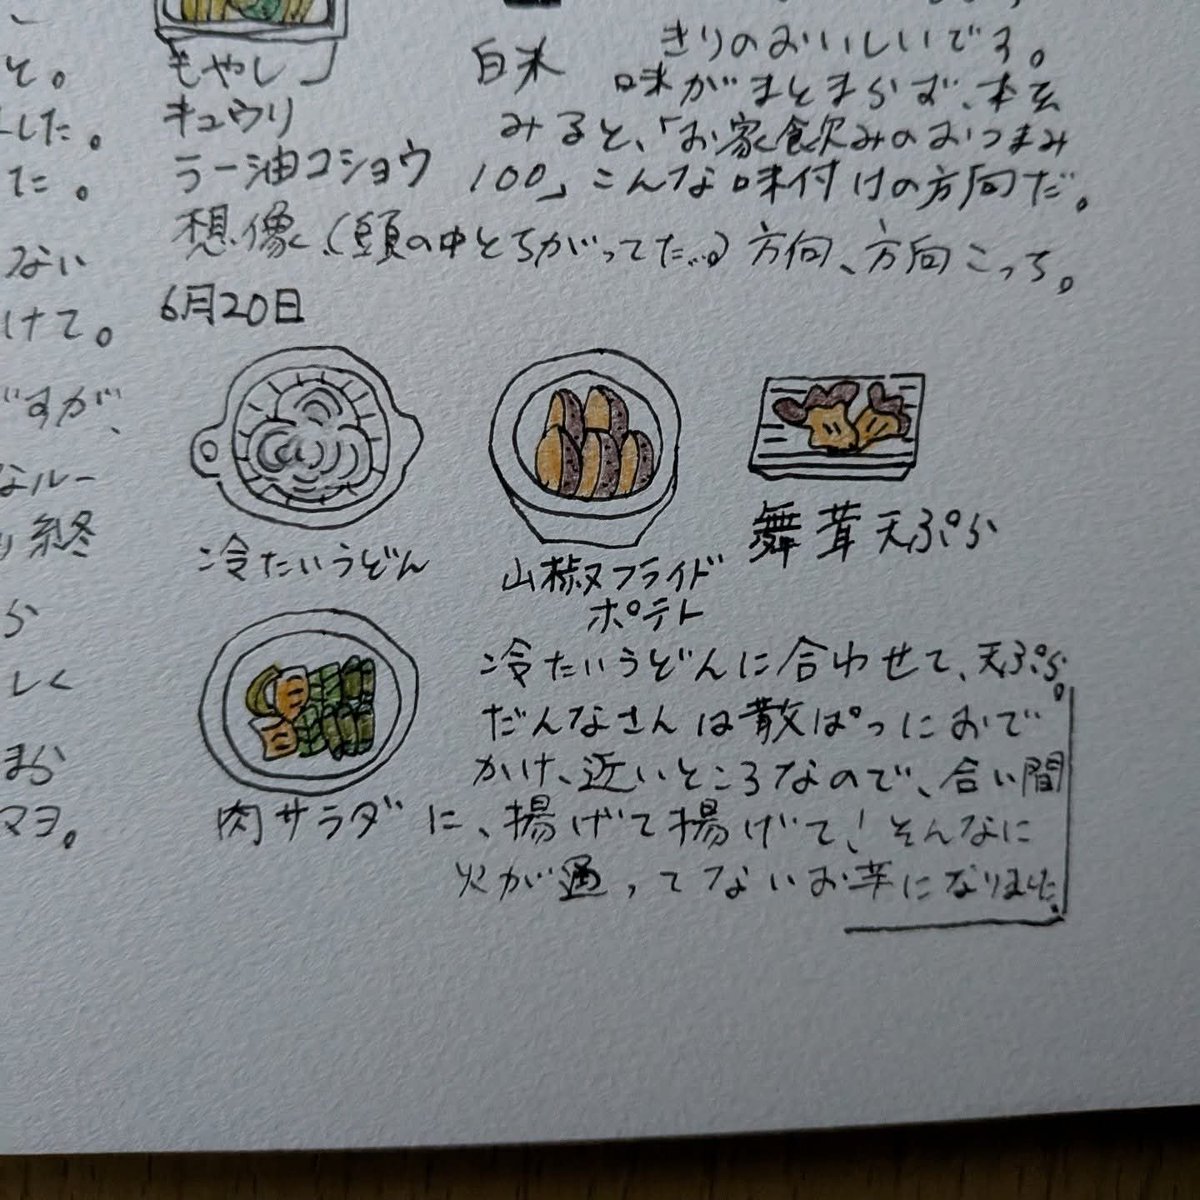 と。
した。
た。
ない
けて。
ですが、
なルー
終
ら
しく
まか
マヨ。
もやし
キュウリ
ラー油コショウ
白米
きりのおいしいです。
味がまとまらず、本を
みると、「お家飲みのおつまみ
100」こんな味付けの方向だ。
想像、(頭の中とちがってた…。)方向、方向こっち。
6月20日
冷たいうどん
山椒フライド
ポテト
舞茸天ぷら
肉サラダ
冷たいうどんに合わせて、天ぷら。
だんなさんは散ぱつにおで
かけ、近いところなので、合い間
に、揚げて揚げて！そんなに
火が通ってないお芋になりました。